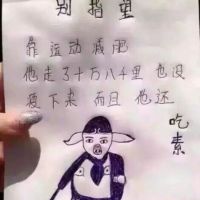 别指望
靠运动减肥
他走了十万八千里 也没
瘦下来 而且 他还
吃素